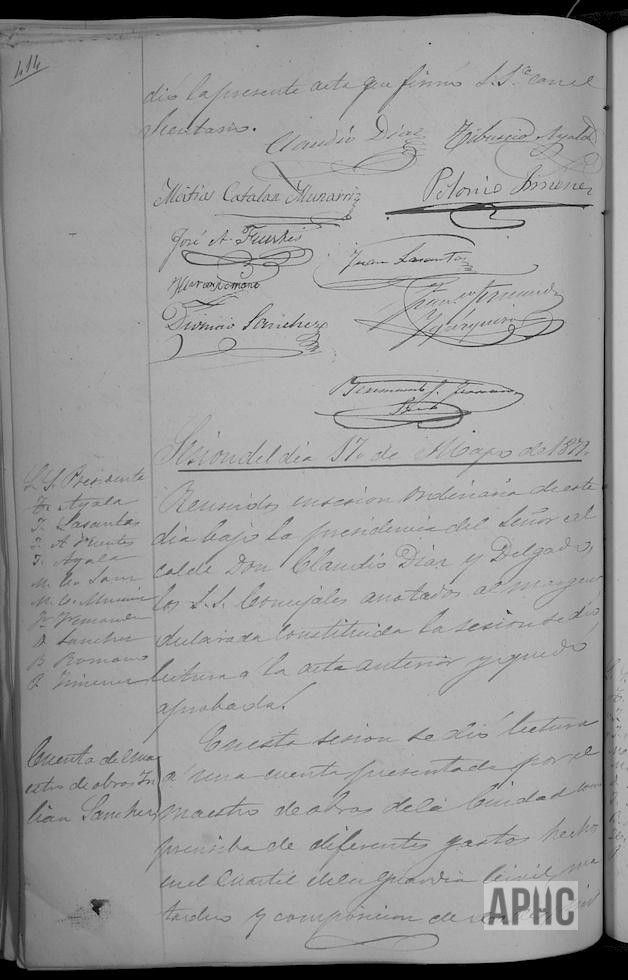 414
dió la presente acta que firmó S.Sª con el
Secretario.
Claudio Diaz
Tiburcio Ayala
Matias Catalan Munarriz
Polonio Jimenez
José A. Fuertes
Juan Lasanta
Romano
Dionisio Sanchez
Franco Fernandez
Sesion del dia 17 de Mayo de 187
S.S. Presidente
Ayala
Lasanta
A Fuertes
Ayala
M. C.
M. C.
Fernandez
D Sanchez
B Romano
P. Jimenez
Reunidos en sesion ordinaria de este
dia bajo la presidencia del Señor al
calde Don Claudio Diaz y Delgado,
los S.S. Concejales anotados al margen
declarada constituida la sesion se dió
lectura a la acta anterior y quedó
aprobada.
Cuenta del ma
estro de obras Ju
lian Sanchez
En esta sesion se dió lectura
a una cuenta presentada por el
maestro de obras de la Ciudad com
prensiba de diferentes gastos hechos
en el Cuartel de la guardia Civil, ma
tadero y composicion de
APHC